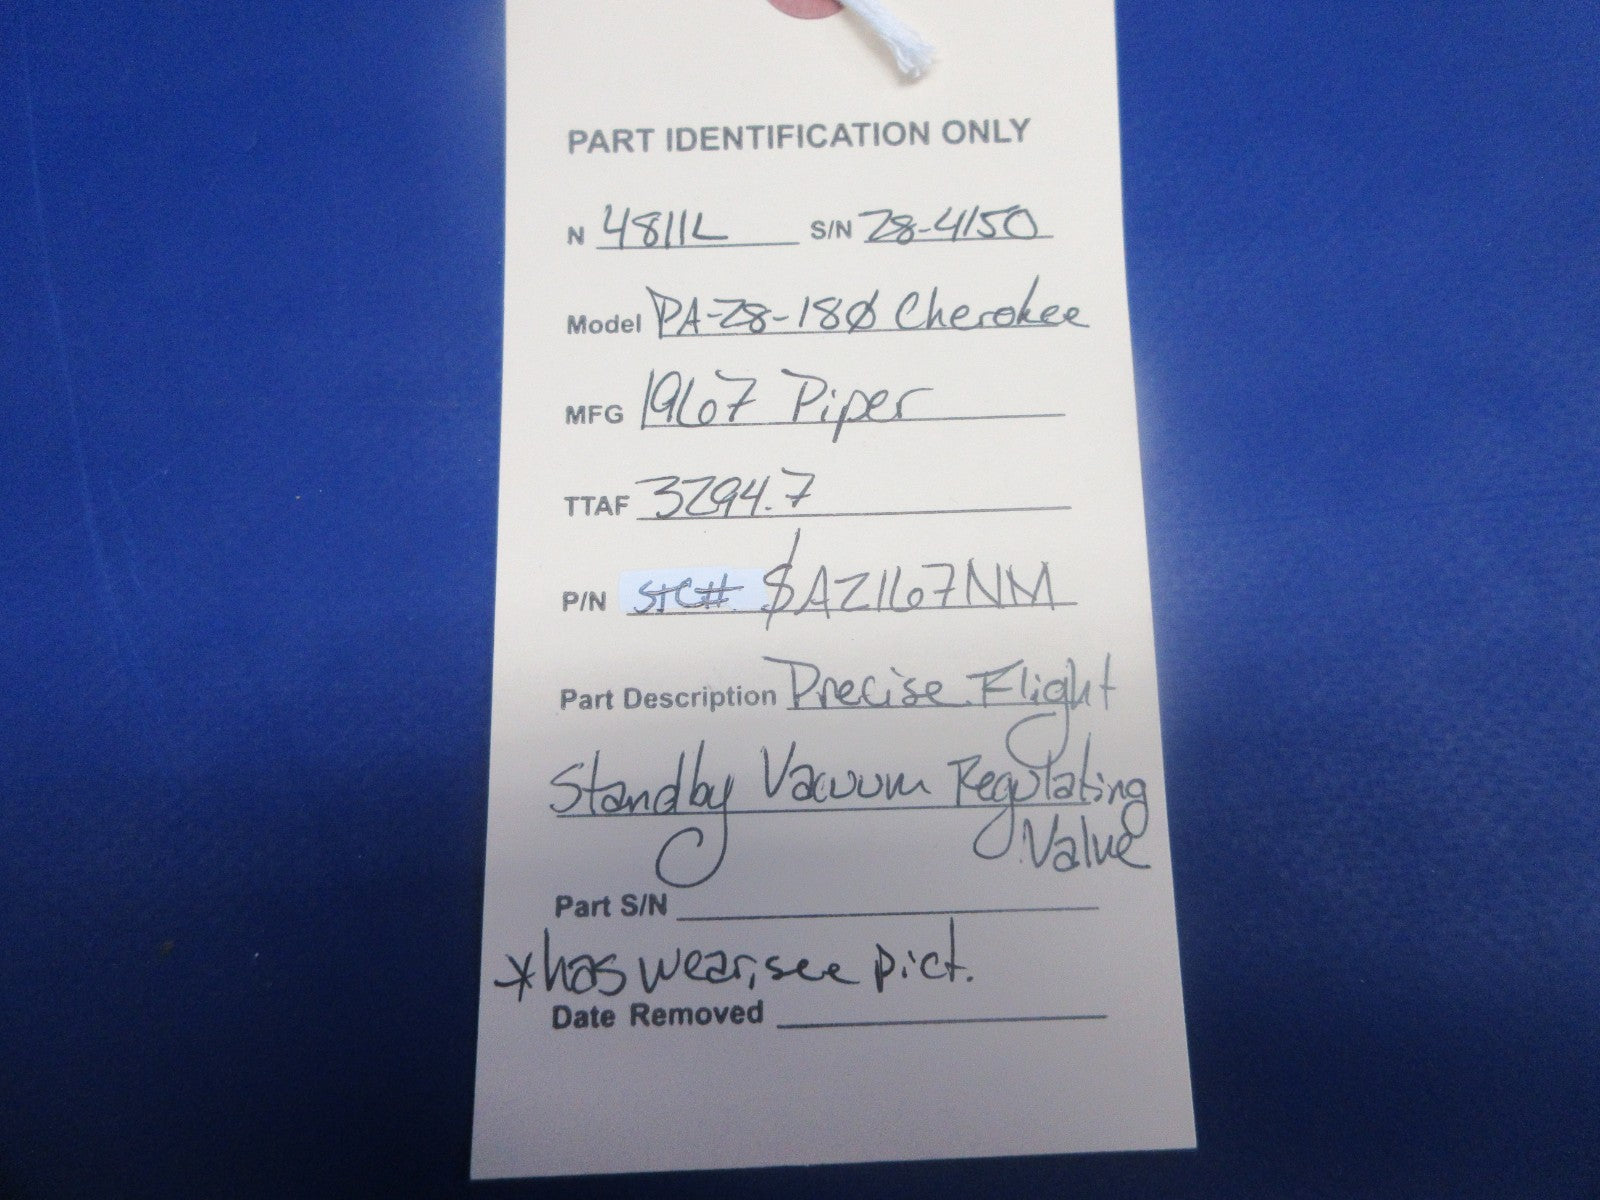 PART IDENTIFICATION ONLY
N 4811L S/N 28-4150
Model PA-28-180 Cherokee
MFG 1967 Piper
TTAF 3294.7
P/N STC# SA2167NM
Part Description Precise Flight
Standby Vacuum Regulating
Valve
Part S/N
*has wear, see pict.
Date Removed